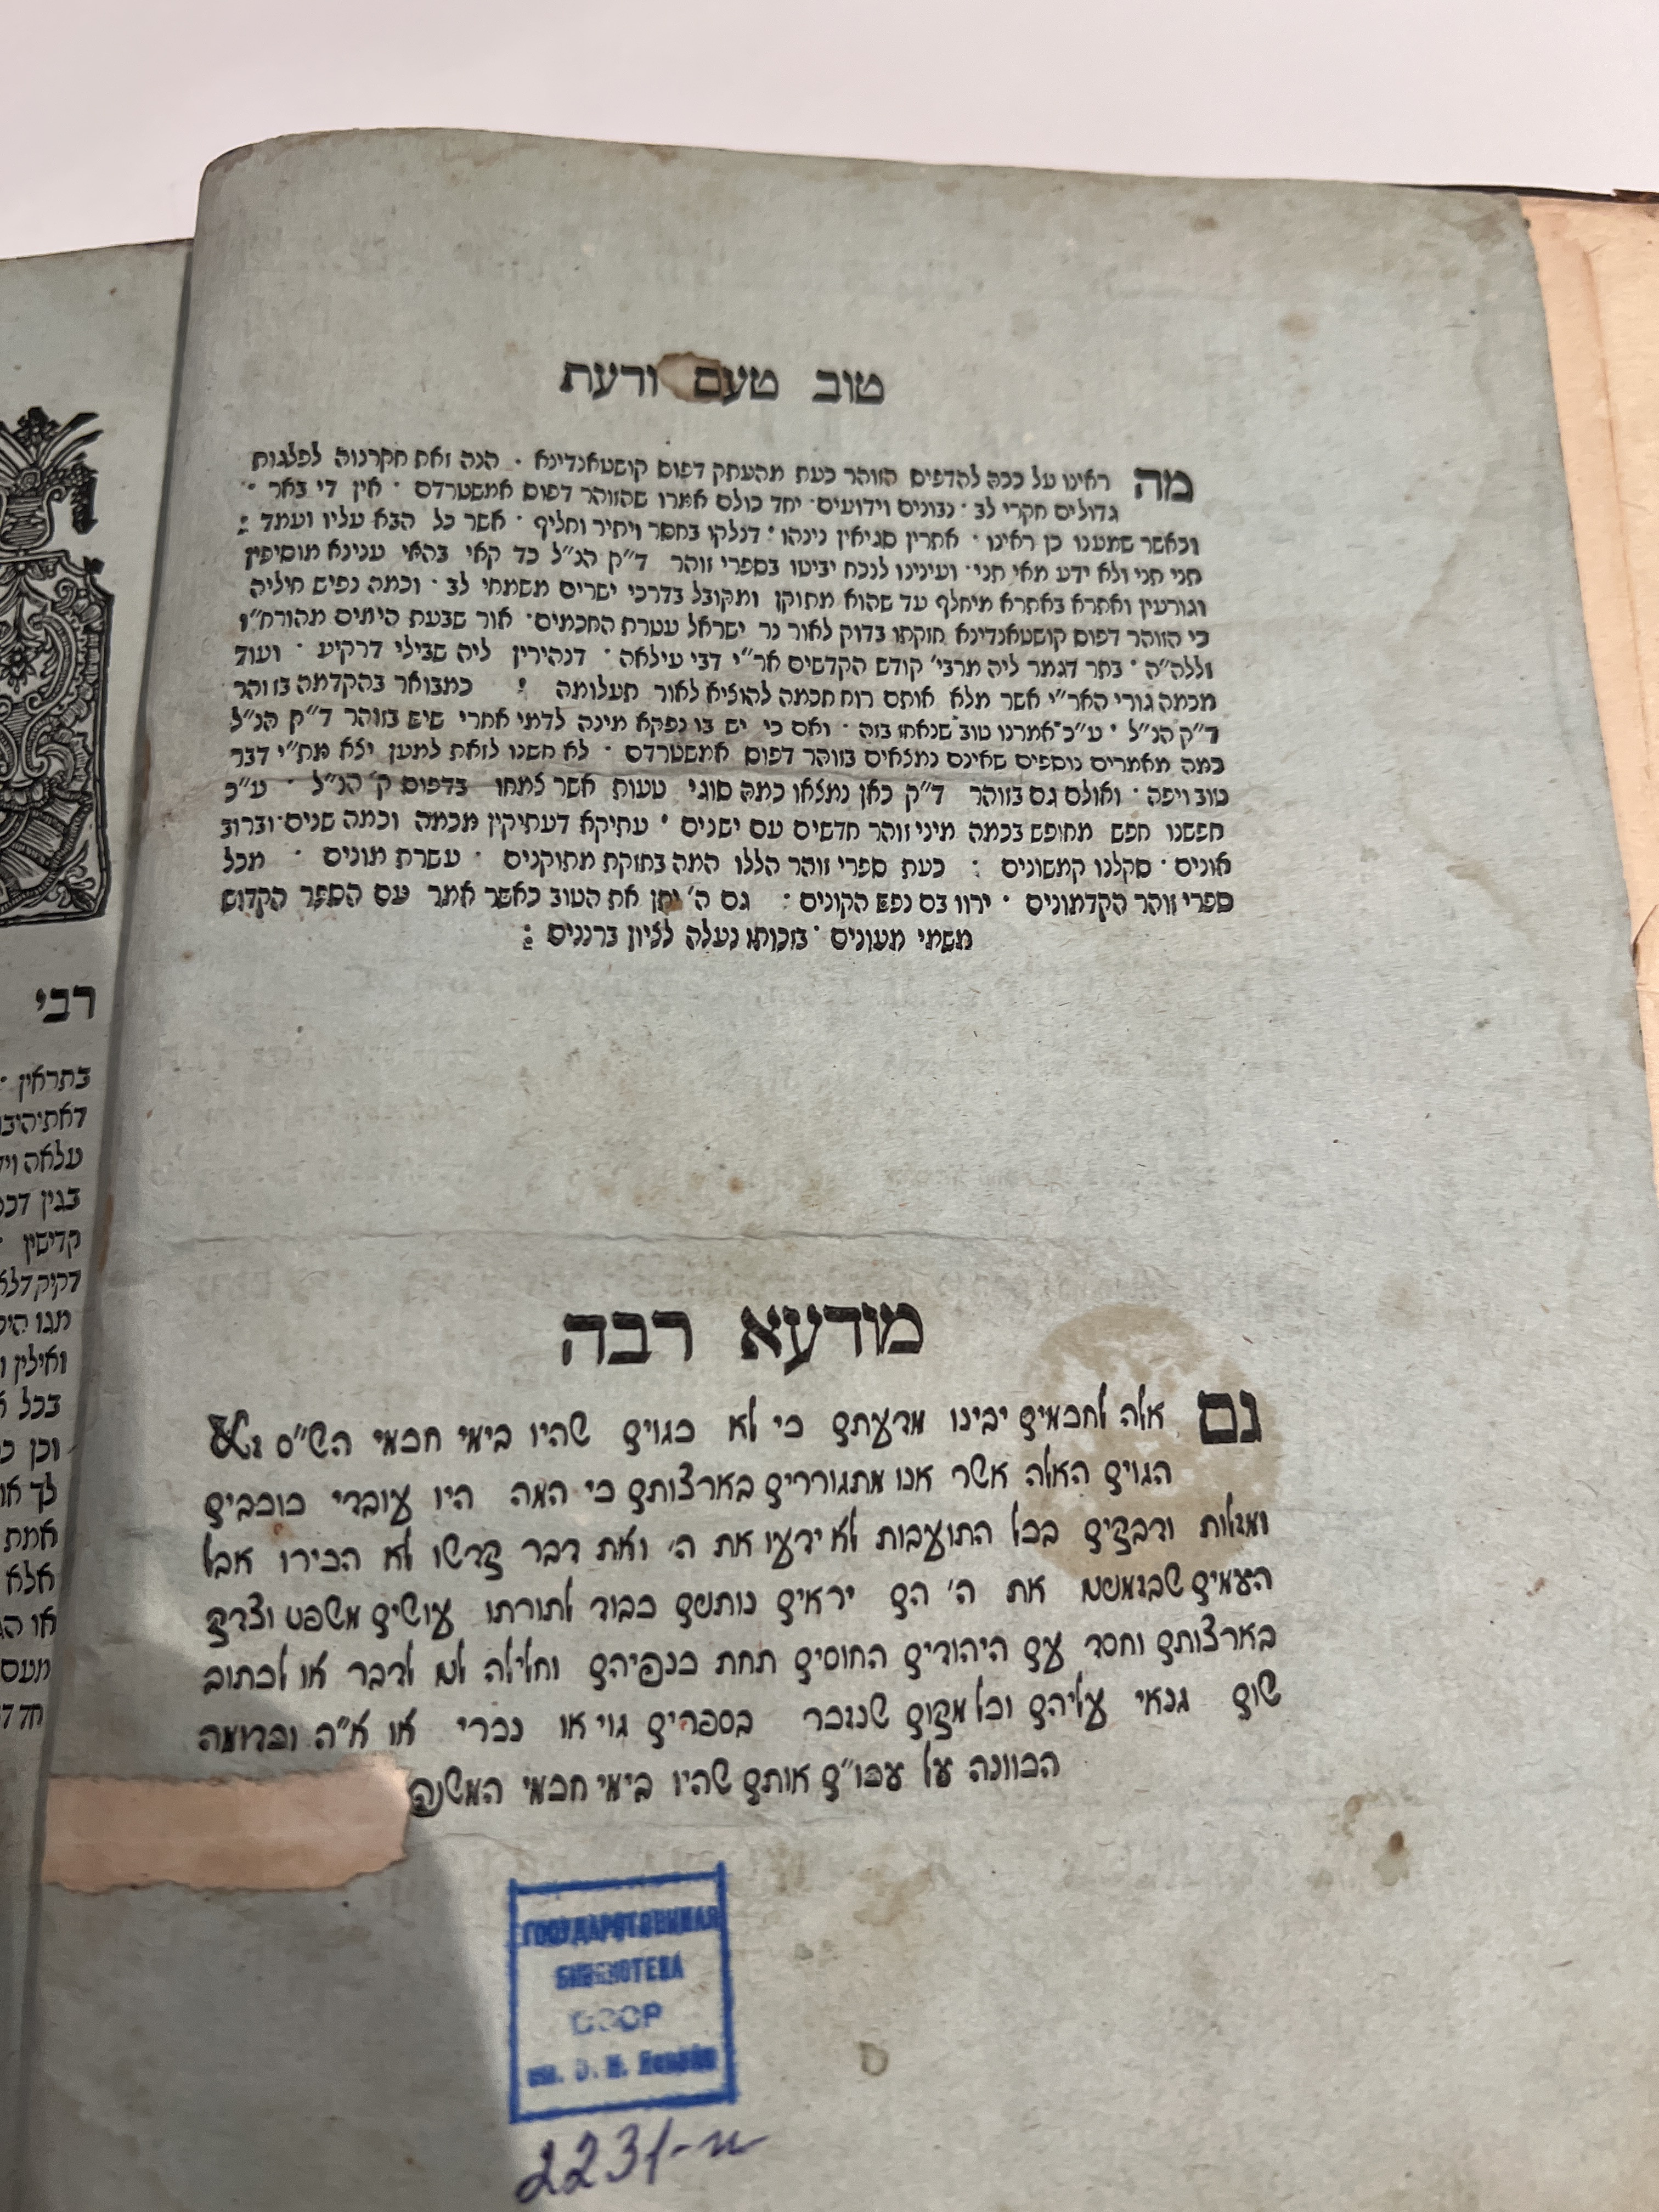 טוב טעם ודעת
מה ראינו על ככה להדפיס הזוהר כעת מהעתק דפוס קושטאנדינא · הנה זאת חקרנוה לפלגות
גדולים חקרי לב · נבונים וידועים · יחד כולם אמרו שהזוהר דפוס אמשטרדם · אין די באר ·
וכאשר שמענו כן ראינו · אתרין סגיאין נינהו · דנלקו בחסר ויתיר וחליף · אשר כל הבא עליו ועמד :
תני תני ולא ידע מאי תני · ועינינו לנכח יביטו בספרי זוהר ד"ק הנ"ל כד קאי בהאי ענינא מוסיפין
וגורעין ואתרא באתרא מיחלף עד שהוא מתוקן ומקובל בדרכי ישרים משמחי לב · וכמה נפיש חיליה
כי הזוהר דפוס קושטאנדינא חזקתו בדוק לאור נר ישראל עטרת החכמים · אור שבעת הימים מהורח"ו
זללה"ה · בתר דגמר ליה מרבי' קודש הקדשים אר"י דבי עילאה · דנהירין ליה שבילי דרקיע · ועוד
מכמה גורי האר"י אשר מלא אותם רוח חכמה להוציא לאור תעלומה : כמבואר בהקדמה בזוהר
ד"ק הנ"ל · ע"כ אמרנו טוב שנאחז בזה · ואם כי יש בו נפקא מינה לדמי אחרי שיש בזוהר ד"ק הנ"ל
כמה מאמרים נוספים שאינם נמצאים בזוהר דפוס אמשטרדם · לא חשנו לזאת למען יצא מת"י דבר
טוב ויפה · ואולם גם בזוהר ד"ק כאן נמצאו כמה סוגי טעות אשר צמחו בדפוס ק' הנ"ל · ע"כ
חפשנו חפש מחופש בכמה מיני זוהר חדשים עם ישנים · עתיקא דעתיקין מכמה וכמה שנים · וברוב
אונים · סקלנו קמשונים : כעת ספרי זוהר הללו המה בחזקת מתוקנים · עשרת מונים · מכל
ספרי זוהר הקדמונים · ירוו בם נפש הקונים · גם ה' יתן את הטוב כאשר אמר עם הספר הקדוש
משמי מעונים · בזכותו נעלה לציון ברננים :
מודעא רבה
גם אלה לחכמים יבינו מדעתם כי לא כגוים שהיו בימי חכמי הש"ס
הגוים האלה אשר אנו מתגוררים בארצותם כי המה היו עובדי כוכבים
ומזלות ודבקים בכל התועבות לא ידעו את ה' ואת דבר קדשו לא הכירו אבל
העמים שבזמנינו את ה' הם יראים נותנים כבוד לתורתו עושים משפט וצדק
בארצותם וחסד עם היהודים החוסים תחת כנפיהם וחלילה לנו לדבר או לכתוב
שום גנאי עליהם וכל מקום שנזכר בספרים גוי או נכרי או א"ה וכדומה
הכוונה על עכו"ם אותם שהיו בימי חכמי המשנה
רבי
בתראין ·
עלאה
בגין
קדישין
ואילין
בכל
וכן
אמת
אלא
ГОСУДАРСТВЕННАЯ
БИБЛИОТЕКА
СССР
им. В. И. Ленина
2231-и